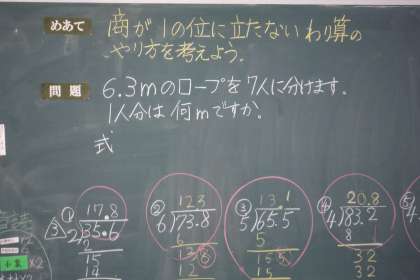 めあて 商が1の位に立たないわり算の
やり方を考えよう。
問題 6.3mのロープを7人に分けます。
1人分は何mですか。
式
① 17.8
2)35.6
2
15
14
② 123
6)73.8
6
13
③ 13.1
5)65.5
5
15
15
④ 20.8
4)83.2
8
32
32